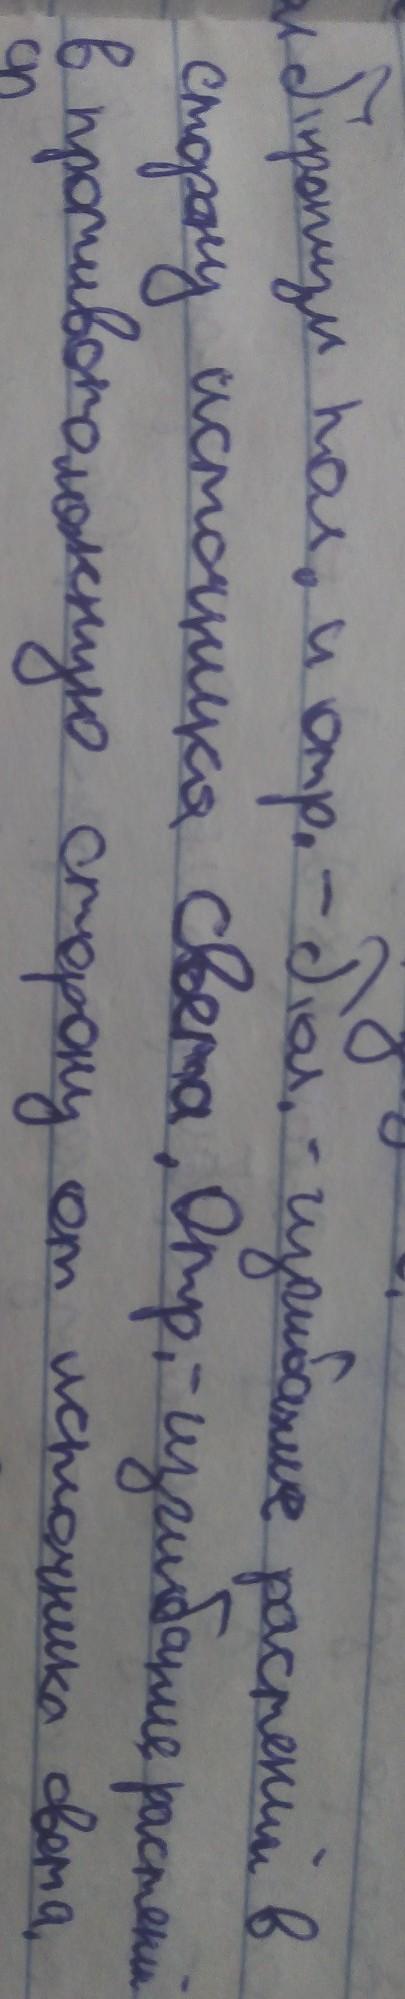 тропизм пол. и отр. - пол. - изгибание растений в
сторону источника света. Отр. - изгибание растений
в противоположную сторону от источника света.